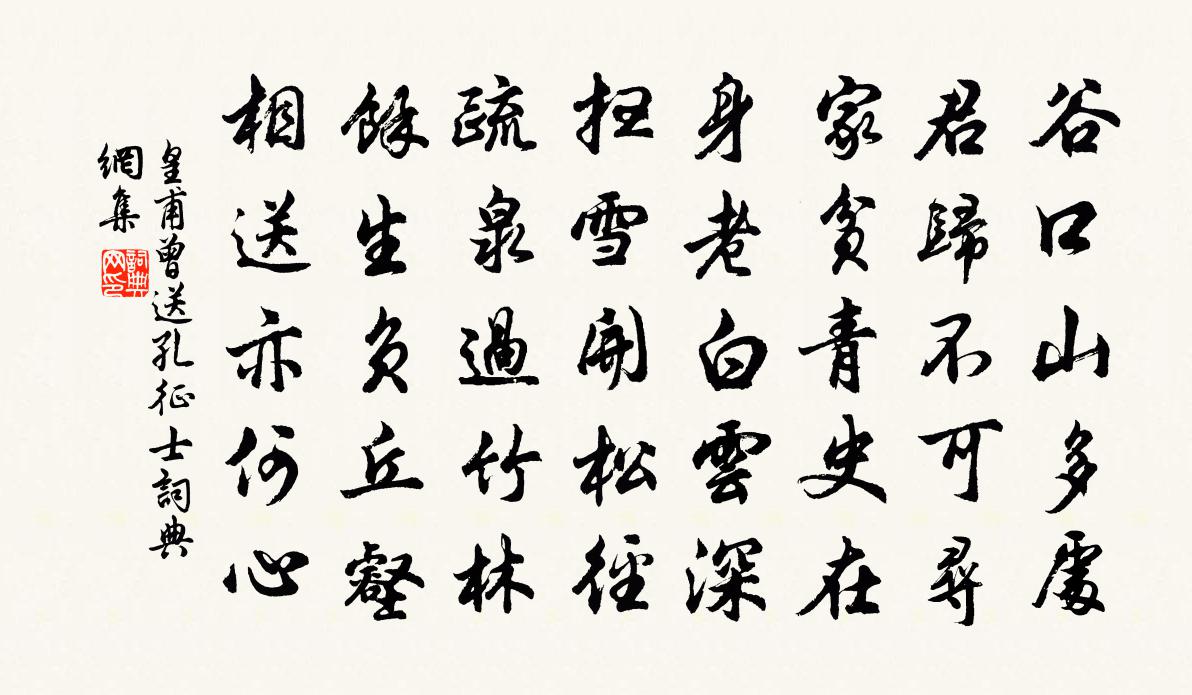 谷口山多處
君歸不可尋
家貧青史在
身老白雲深
掃雪開松徑
疏泉過竹林
餘生負丘壑
相送亦何心
皇甫曾送孔征士詞典
網集
詞典網印